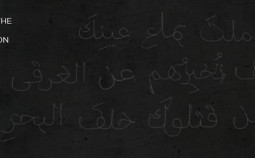 THE
ON
بماءِ عينيكَ
تُخبِرُهم عن الغرقى
قتلوكَ خلفَ البحرِ